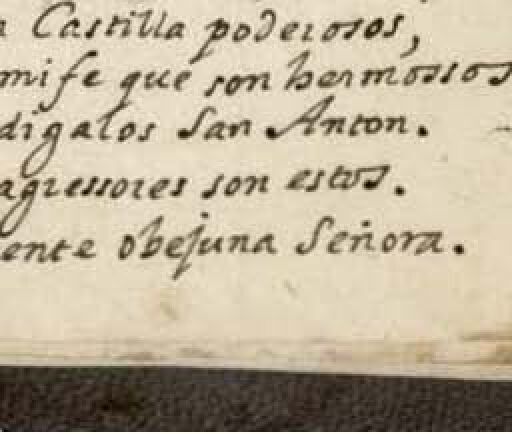 n Castilla poderosos,
mife que son hermossos
digalos San Anton.
agressores son estos.
ente obejuna Señora.